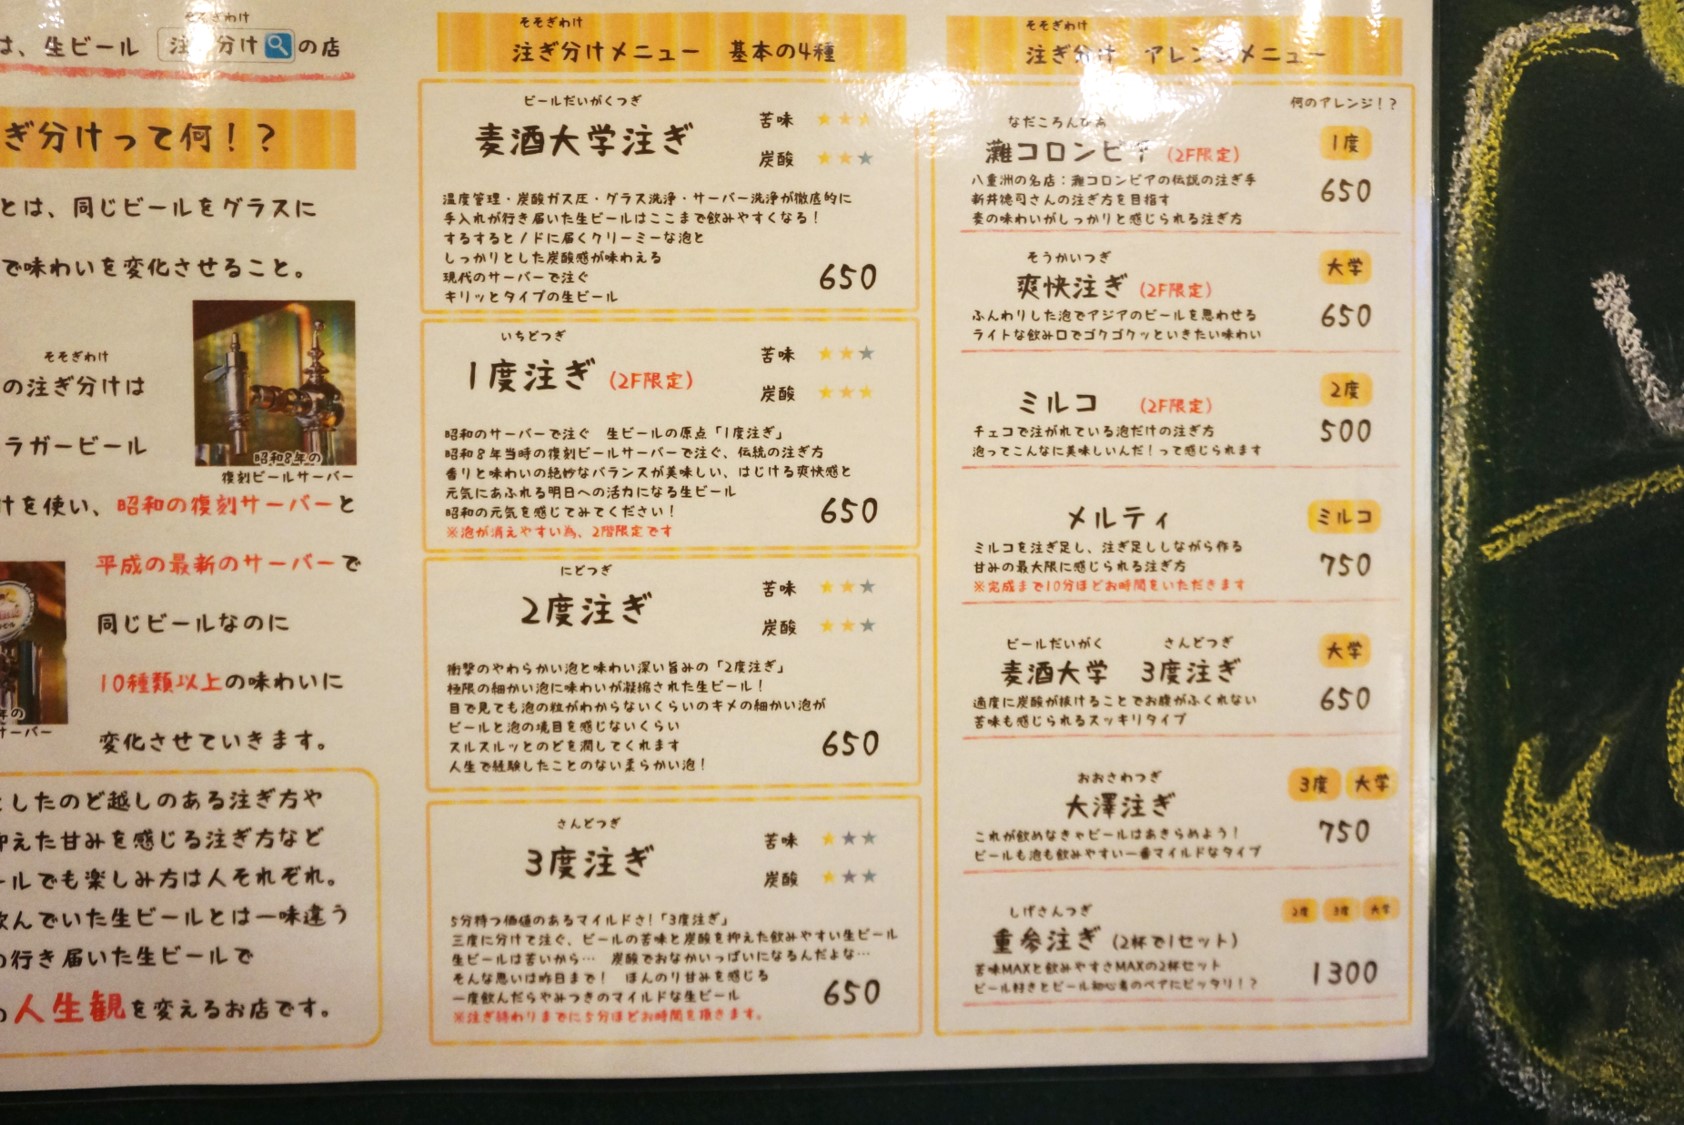 そそぎわけ
は、生ビール 注 分け の店
ぎ分けって何！？
とは、同じビールをグラスに
で味わいを変化させること。
そそぎわけ
の注ぎ分けは
ラガービール
昭和8年の
復刻ビールサーバー
けを使い、昭和の復刻サーバーと
平成の最新のサーバーで
同じビールなのに
10種類以上の味わいに
変化させていきます。
年の
サーバー
としたのど越しのある注ぎ方や
抑えた甘みを感じる注ぎ方など
ールでも楽しみ方は人それぞれ。
飲んでいた生ビールとは一味違う
の行き届いた生ビールで
の人生観を変えるお店です。
そそぎわけ
注ぎ分けメニュー 基本の4種
ビールだいがくつぎ
麦酒大学注ぎ
苦味 ★★★
炭酸 ★★★
温度管理・炭酸ガス圧・グラス洗浄・サーバー洗浄が徹底的に
手入れが行き届いた生ビールはここまで飲みやすくなる！
するするとノドに届くクリーミーな泡と
しっかりとした炭酸感が味わえる
現代のサーバーで注ぐ
キリッとタイプの生ビール
650
いちどつぎ
1度注ぎ (2F限定)
苦味 ★★★
炭酸 ★★★
昭和のサーバーで注ぐ 生ビールの原点「1度注ぎ」
昭和8年当時の復刻ビールサーバーで注ぐ、伝統の注ぎ方
香りと味わいの絶妙なバランスが美味しい、はじける爽快感と
元気にあふれる明日への活力になる生ビール
昭和の元気を感じてみてください！
※泡が消えやすい為、2階限定です
650
にどつぎ
2度注ぎ
苦味 ★★★
炭酸 ★★★
衝撃のやわらかい泡と味わい深い旨みの「2度注ぎ」
極限の細かい泡に味わいが凝縮された生ビール！
目で見ても泡の粒がわからないくらいのキメの細かい泡が
ビールと泡の境目を感じないくらい
スルスルッとのどを潤してくれます
人生で経験したことのない柔らかい泡！
650
さんどつぎ
3度注ぎ
苦味 ★★★
炭酸 ★★★
5分待つ価値のあるマイルドさ！「3度注ぎ」
三度に分けて注ぐ、ビールの苦味と炭酸を抑えた飲みやすい生ビール
生ビールは苦いから… 炭酸でおなかいっぱいになるんだよな…
そんな思いは昨日まで！ ほんのり甘みを感じる
一度飲んだらやみつきのマイルドな生ビール
※注ぎ終わりまでに5分ほどお時間を頂きます。
650
そそぎわけ
注ぎ分け アレンジメニュー
何のアレンジ！？
なだころんびあ
灘コロンビア (2F限定)
1度
八重洲の名店：灘コロンビアの伝説の注ぎ手
新井徳司さんの注ぎ方を目指す
麦の味わいがしっかりと感じられる注ぎ方
650
そうかいつぎ
爽快注ぎ (2F限定)
大学
ふんわりした泡でアジアのビールを思わせる
ライトな飲み口でゴクゴクッといきたい味わい
650
ミルコ (2F限定)
2度
チェコで注がれている泡だけの注ぎ方
泡ってこんなに美味しいんだ！って感じられます
500
メルティ
ミルコ
ミルコを注ぎ足し、注ぎ足ししながら作る
甘みの最大限に感じられる注ぎ方
※完成まで10分ほどお時間をいただきます
750
ビールだいがく さんどつぎ
麦酒大学 3度注ぎ
大学
適度に炭酸が抜けることでお腹がふくれない
苦味も感じられるスッキリタイプ
650
おおさわつぎ
大澤注ぎ
3度 大学
これが飲めなきゃビールはあきらめよう！
ビールも泡も飲みやすい一番マイルドなタイプ
750
しげさんつぎ
重参注ぎ (2杯で1セット)
2度 3度 大学
苦味MAXと飲みやすさMAXの2杯セット
ビール好きとビール初心者のペアにピッタリ！？
1300